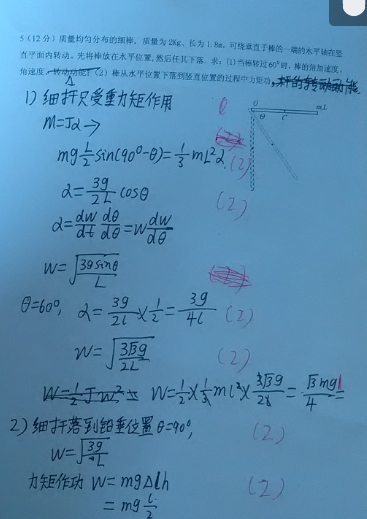 5 (12分) 质量均匀分布的细棒，质量为2Kg、长为1.8m，可绕垂直于棒的一端的水平轴在竖
直平面内转动。先将棒放在水平位置，然后任其下落。求：(1)当棒转过60°时，棒的角加速度、
角速度、转动动能；(2) 棒从水平位置下落到竖直位置的过程中力矩功，杆的转动动能
1) 细杆只受重力矩作用
M=Jα→
O
θ
C
mL
mg L/2 sin(90°-θ)=1/3 mL²α (2)
α=3g/2L cosθ (2)
α=dw/dt dθ/dθ=w dw/dθ
w=√(3gsinθ/L)
θ=60°, α=3g/2L×1/2=3g/4L (2)
w=√(3√3g/2L) (2)
W=1/2 J w² W=1/2×1/3 mL²×3√3g/2L=√3mgl/4
2) 细杆落到铅垂位置 θ=90°, (2)
w=√(3g/L)
力矩作功 W=mgΔh (2)
=mg L/2